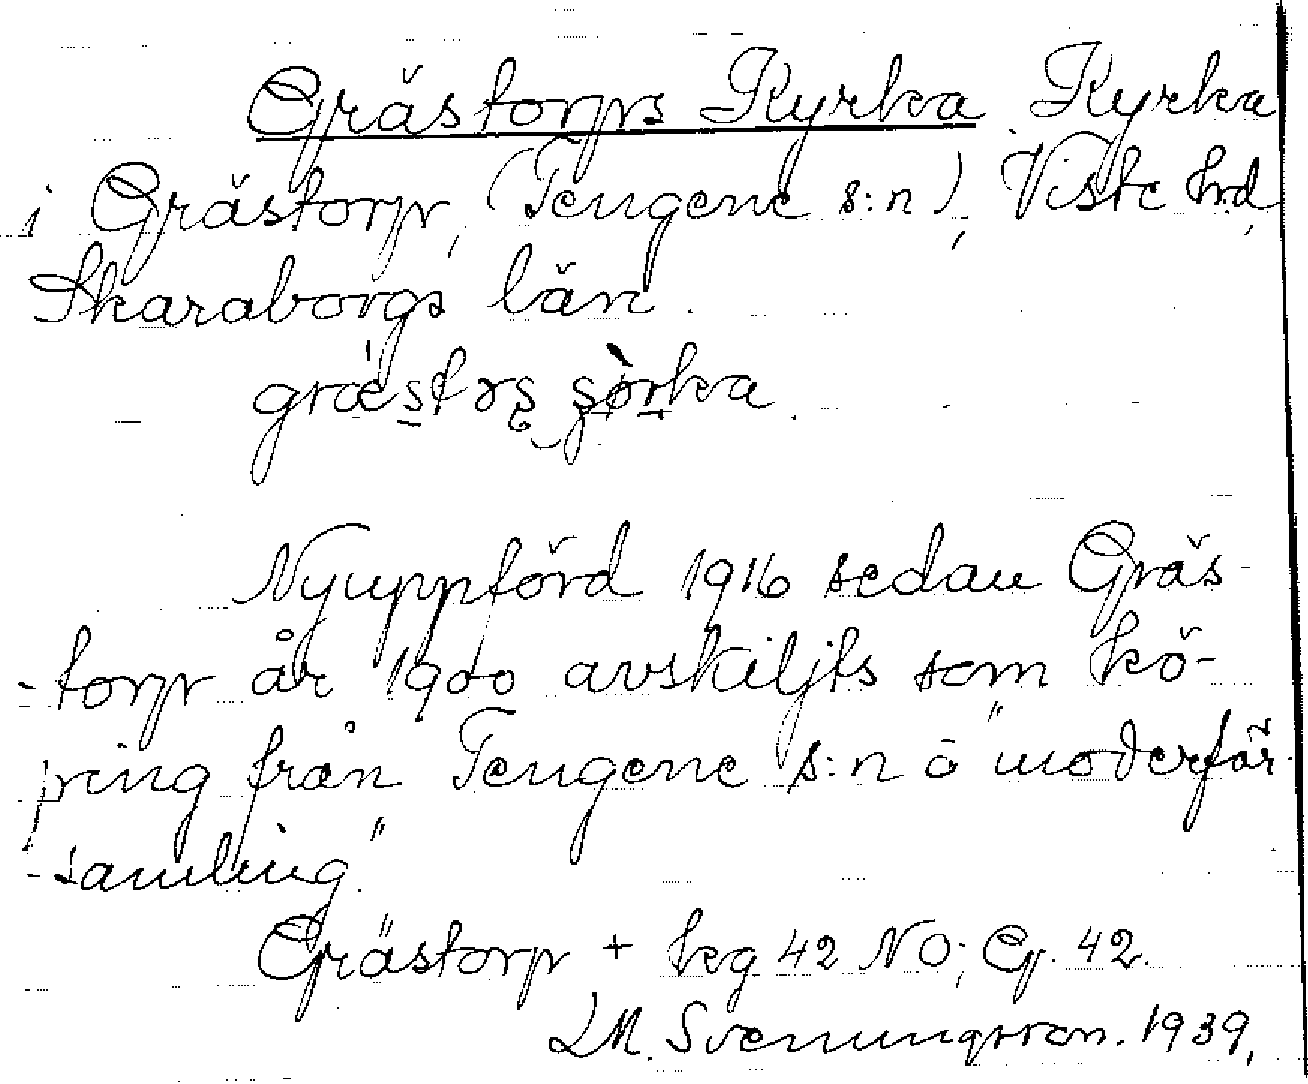 Grästorps Kyrka Kyrka
i Grästorp, (Tengene s:n), Viste hd,
Skaraborgs län.
græstərs ṣörka.
Nyuppförd 1916 sedan Gräs-
-torp år 1900 avskiljts som kö-
ping från Tengene s:n o "moderför-
-samling".
Grästorp + kg 42 NO; Eg. 42.
LM. Svenungsson. 1939.